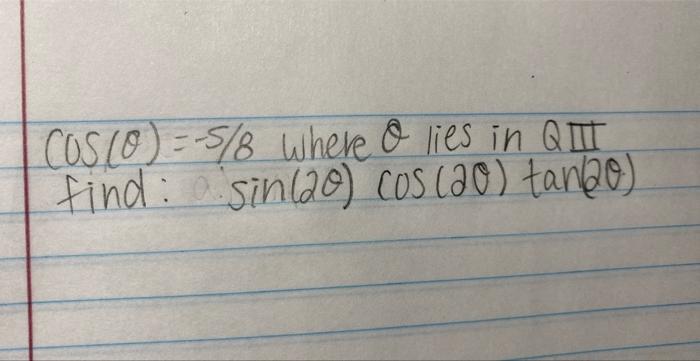 cos(θ) = -5/8 where θ lies in QIII
find: sin(2θ) cos(2θ) tan(2θ)